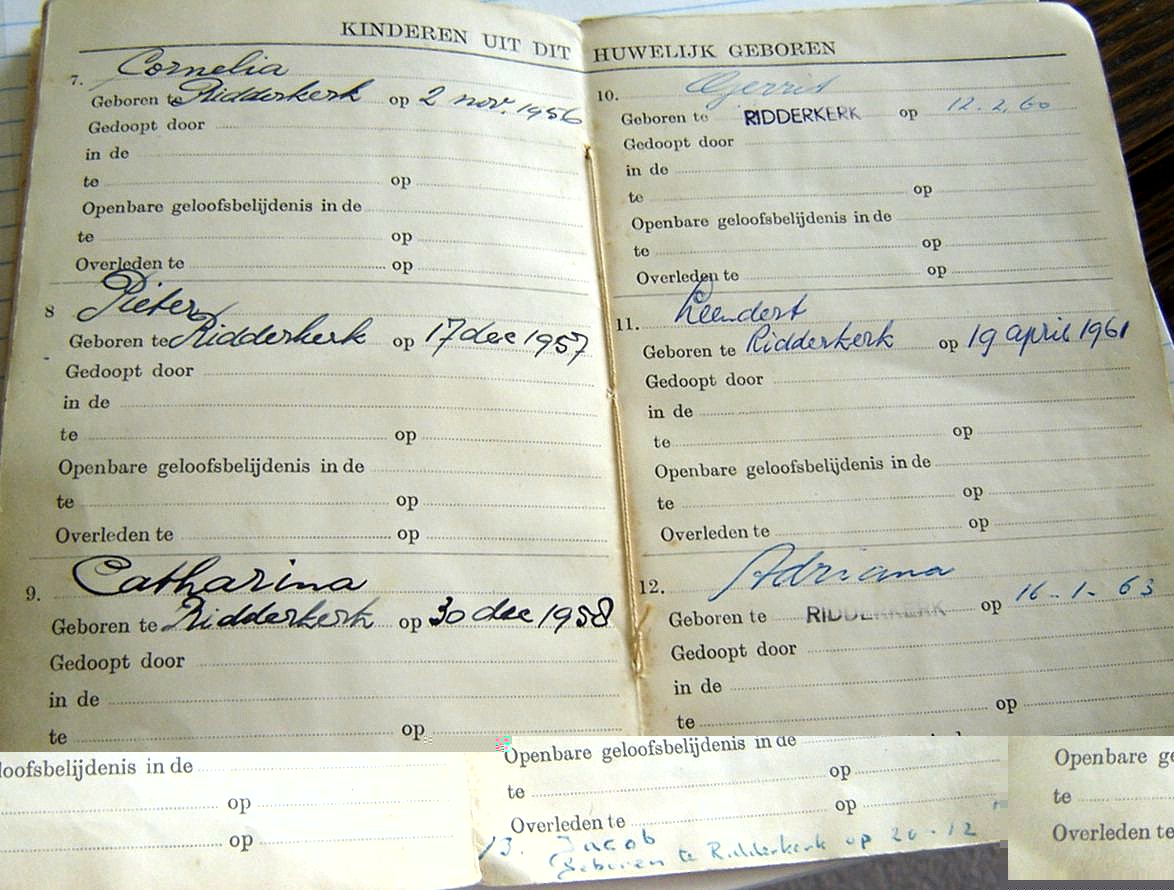 KINDEREN UIT DIT HUWELIJK GEBOREN
7. Cornelia
Geboren te Ridderkerk op 2 nov. 1956
Gedoopt door
in de
te op
Openbare geloofsbelijdenis in de
te op
Overleden te op
8 Pieter
Geboren te Ridderkerk op 17 dec 1957
Gedoopt door
in de
te op
Openbare geloofsbelijdenis in de
te op
Overleden te op
9. Catharina
Geboren te Ridderkerk op 30 dec 1958
Gedoopt door
in de
te op
loofsbelijdenis in de
op
op
10. Gerrit
Geboren te RIDDERKERK op 12.2.60
Gedoopt door
in de
te op
Openbare geloofsbelijdenis in de
te op
Overleden te op
11. Leendert
Geboren te Ridderkerk op 19 april 1961
Gedoopt door
in de
te op
Openbare geloofsbelijdenis in de
te op
Overleden te op
12. Adriana
Geboren te RIDDERKERK op 16-1-63
Gedoopt door
in de
te op
Openbare geloofsbelijdenis in de
te op
Overleden te op
13. Jacob
Geboren te Ridderkerk op 20-12
Openbare ge
te
Overleden te